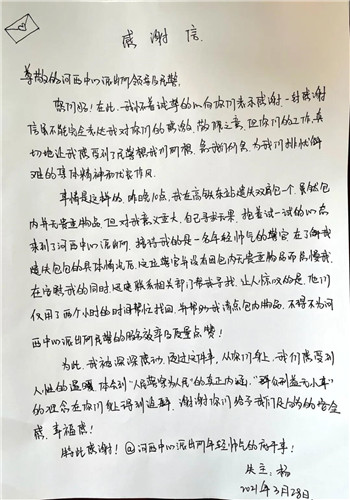 感谢信
尊敬的河西中心派出所领导及民警:
您们好!在此,我怀着诚挚的心向你们表示感谢,一封感谢
信虽不能完全表达我对你们的感激、敬佩之意,但你们的工作,真
切地让我感受到了民警想我们所想,急我们所急,为我们排忧解
难的集体精神和优良作风。
事情是这样的,昨晚10点,我在高铁东站遗失双肩包一个,虽然包
内并无贵重物品,但对我意义重大,自己寻无果,抱着试一试的心态
来到了河西中心派出所,接待我的是一名年轻帅气的警官,在了解我
遗失包包的具体情况后,这位警官并没有因包内无贵重物品而怠慢我,
在安慰我的同时,迅速联系相关部门帮我寻找,让人惊叹的是,他们
仅用了两个小时的时间帮忙找回,并帮助我清点包内物品,不得不为河
西中心派出所民警的服务效率及质量点赞!
为此,我被深深感动,通过这件事,从你们身上,我们感受到
人性的温暖,体会到“人民警察为人民”的真正内涵,“群众利益无小事”
的理念在你们身上得到诠释,谢谢你们给予我们及时的安全
感、幸福感!
特此感谢!@河西中心派出所年轻帅气的
失主:杨
2021年3月28日